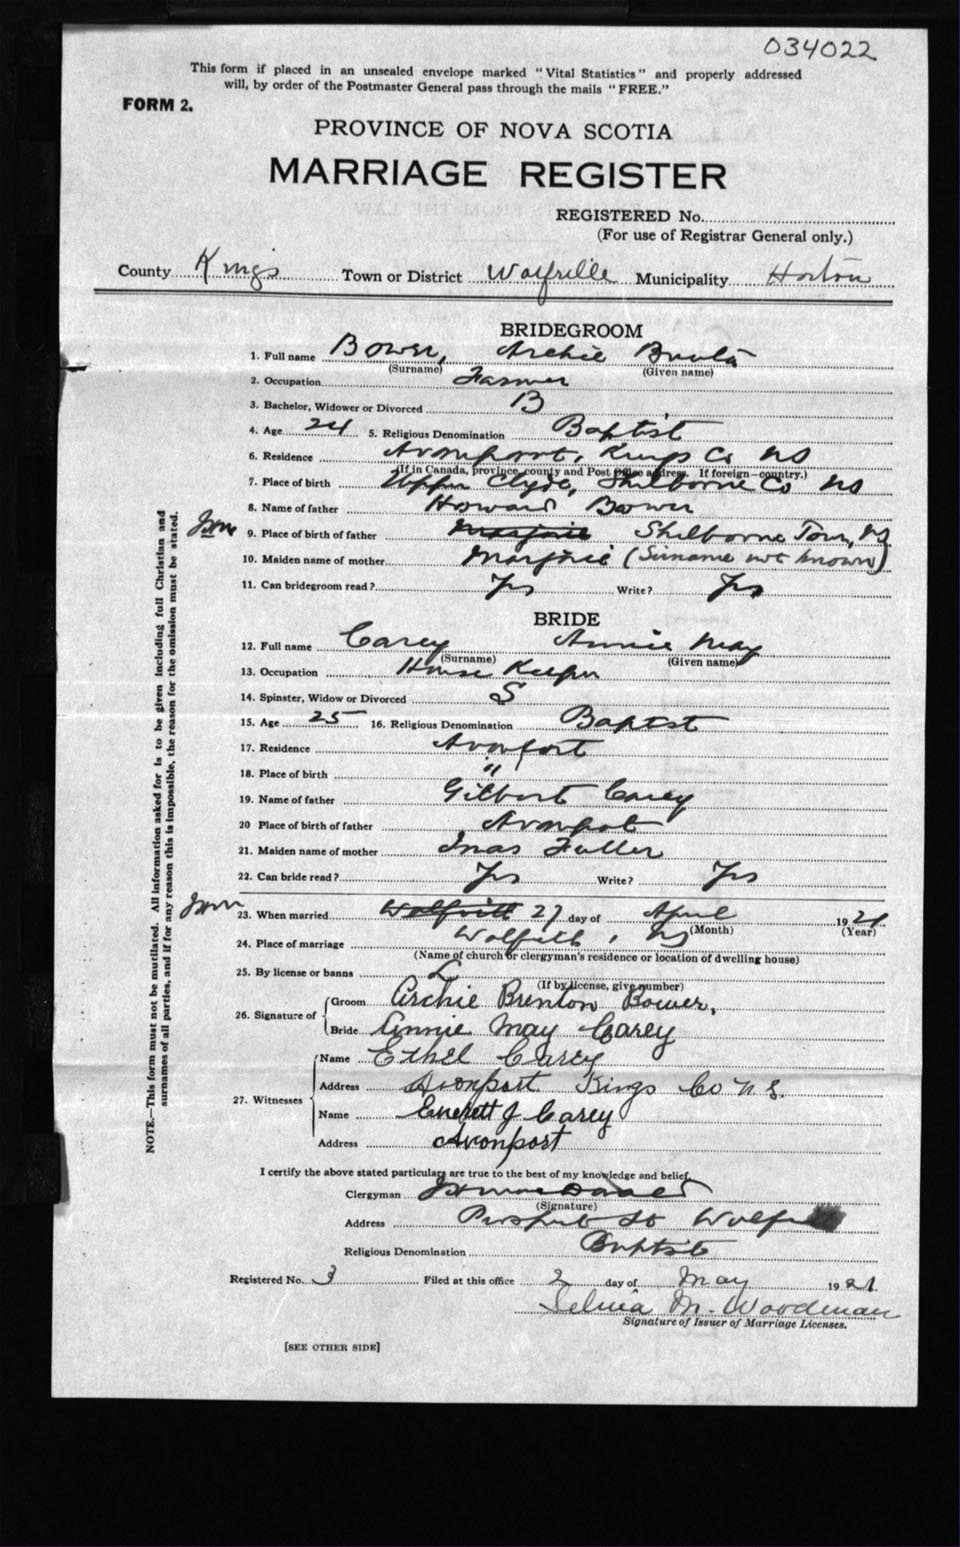 034022
This form if placed in an unsealed envelope marked "Vital Statistics" and properly addressed
will, by order of the Postmaster General pass through the mails "FREE."
FORM 2.
PROVINCE OF NOVA SCOTIA
MARRIAGE REGISTER
REGISTERED No.
(For use of Registrar General only.)
County Kings Town or District Wolfville Municipality Horton
BRIDEGROOM
1. Full name Bower, Archie
(Surname) (Given name)
2. Occupation Farmer
3. Bachelor, Widower or Divorced B
4. Age 24 5. Religious Denomination Baptist
6. Residence Avonport, Kings Co NS
(If in Canada, province, county and Post Office address. If foreign—country.)
7. Place of birth Upper Clyde, Shelborne Co NS
8. Name of father Howard Bower
9. Place of birth of father Marjorie Shelborne Town, NS
10. Maiden name of mother Marjorie (Surname not known)
11. Can bridegroom read? Yes Write? Yes
BRIDE
12. Full name Carey Annie May
(Surname) (Given name)
13. Occupation House Keeper
14. Spinster, Widow or Divorced S
15. Age 25 16. Religious Denomination Baptist
17. Residence Avonport
18. Place of birth "
19. Name of father Gilbert Carey
20 Place of birth of father Avonport
21. Maiden name of mother Fuller
22. Can bride read? Yes Write? Yes
23. When married Wolfville 27 day of April 1921
(Month) (Year)
24. Place of marriage Wolfville, NS
(Name of church or clergyman's residence or location of dwelling house)
25. By license or banns L
(If by license, give number)
26. Signature of
Groom Archie Brenton Bower,
Bride Annie May Carey
27. Witnesses
Name Ethel Carey
Address Avonport Kings Co N.S.
Name Everett J Carey
Address Avonport
I certify the above stated particulars are true to the best of my knowledge and belief.
Clergyman
(Signature)
Address Prospect St Wolfville
Religious Denomination Baptist
Registered No. 3 Filed at this office 2 day of May 1921
M. Woodman
Signature of Issuer of Marriage Licenses.
[SEE OTHER SIDE]
NOTE.—This form must not be mutilated. All information asked for is to be given including full Christian and
surnames of all parties, and if for any reason this is impossible, the reason for the omission must be stated.